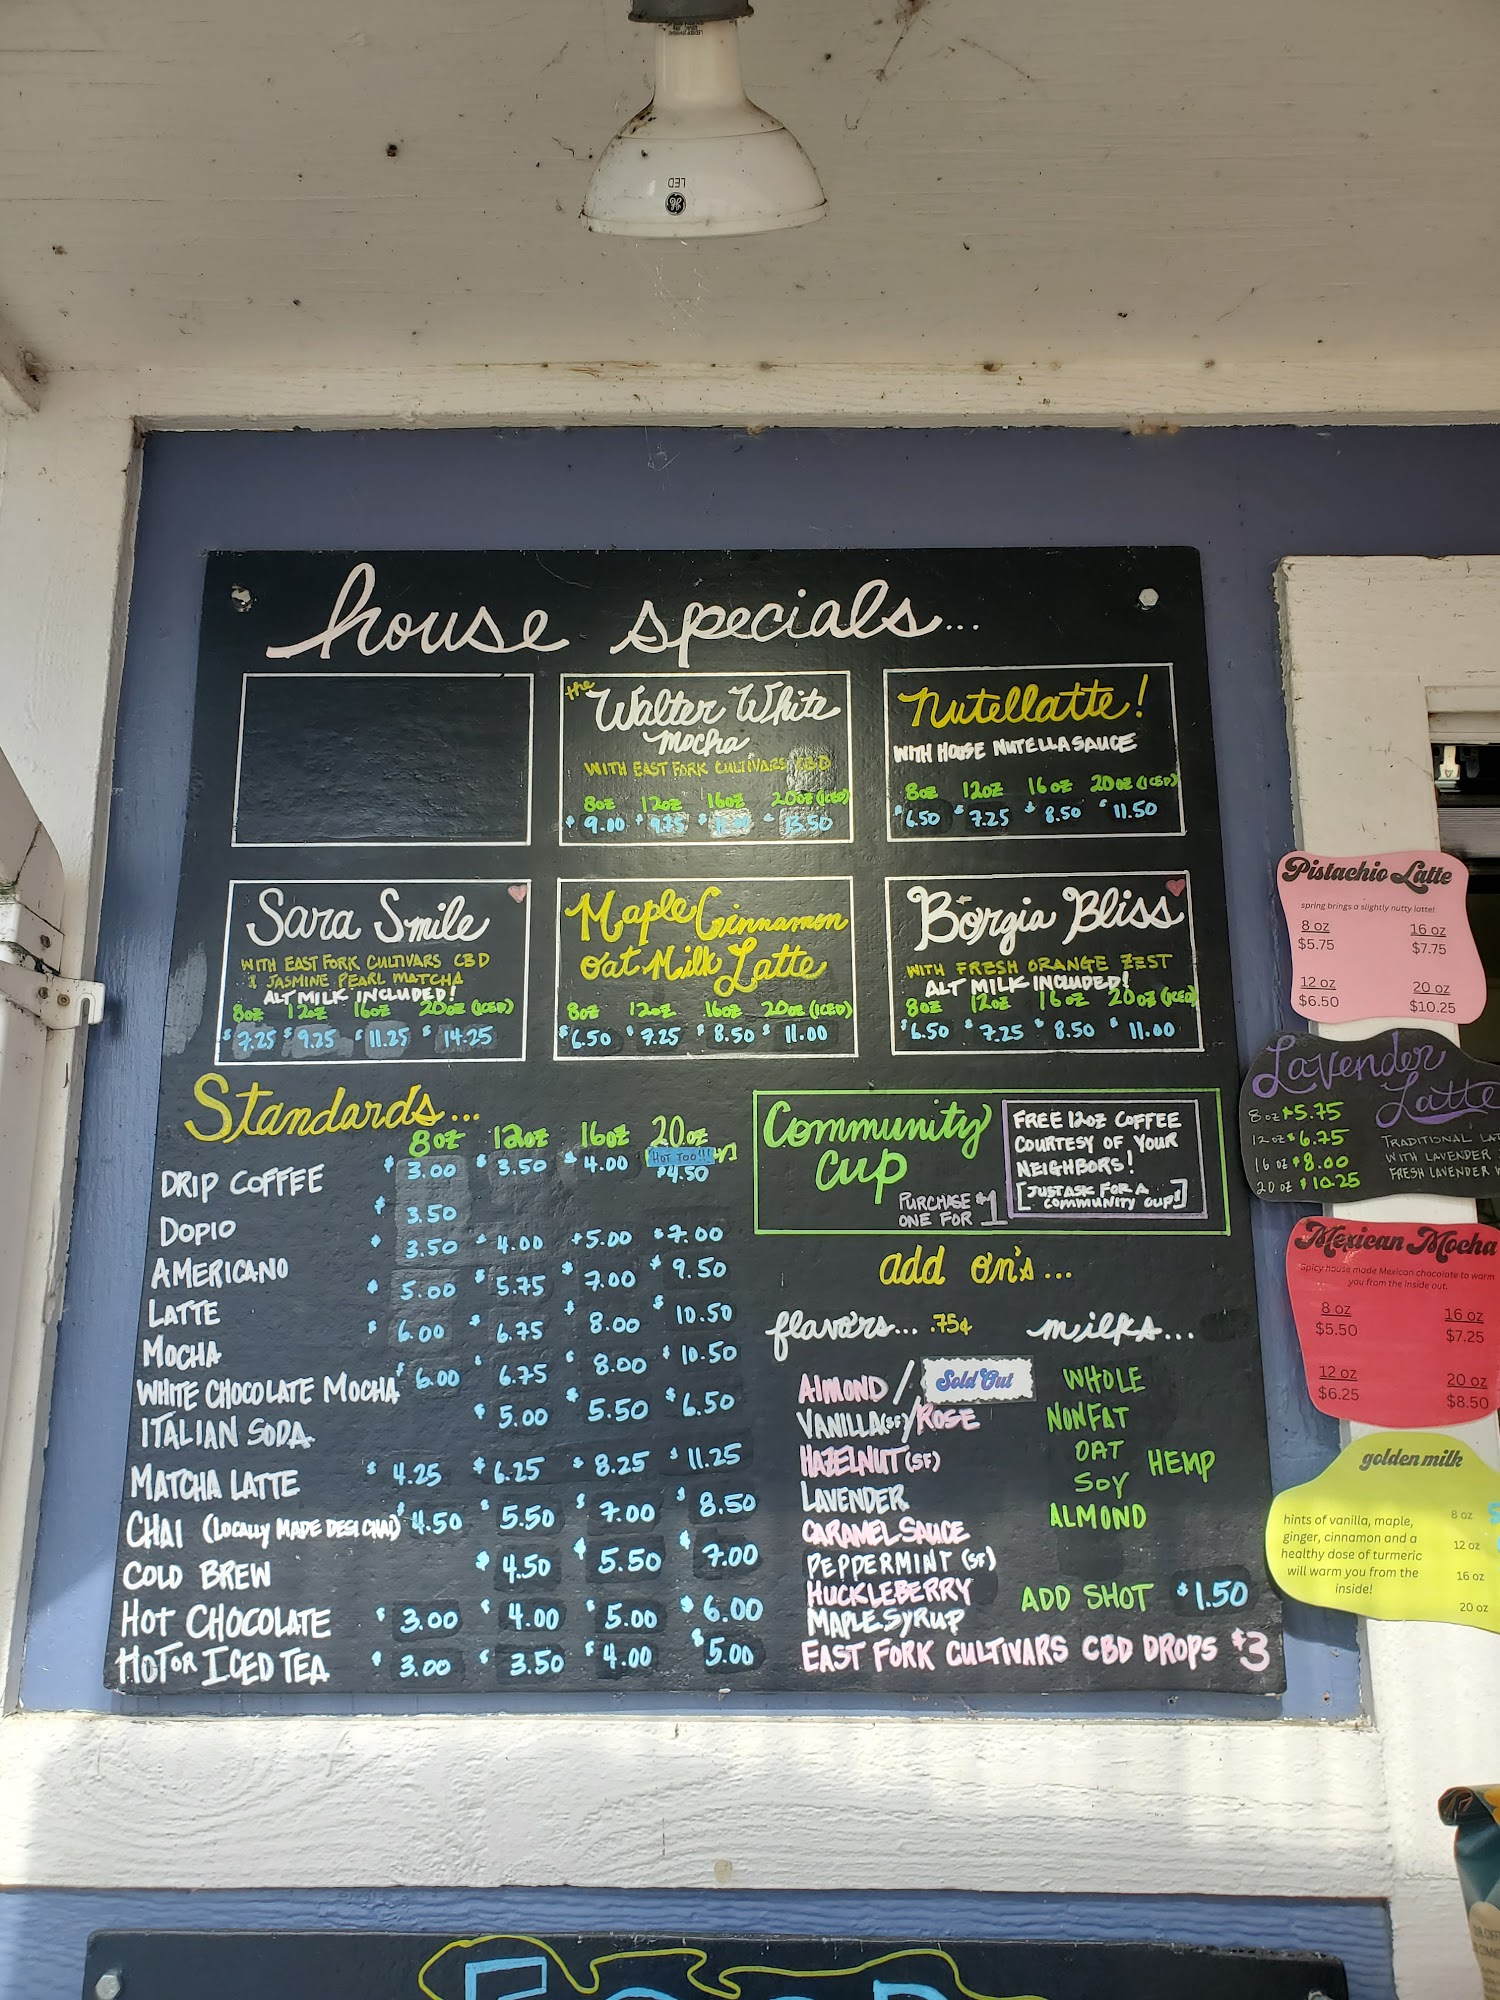 LED
house specials...
the Walter White
mocha
WITH EAST FORK CULTIVARS CBD
8oz 12oz 16oz 20oz (ICED)
$9.00 $9.75 $ $13.50
Nutellatte!
WITH HOUSE NUTELLA SAUCE
8oz 12oz 16oz 20oz (ICED)
$6.50 $7.25 $8.50 $11.50
Sara Smile
WITH EAST FORK CULTIVARS CBD
& JASMINE PEARL MATCHA
ALT MILK INCLUDED!
8oz 12oz 16oz 20oz (ICED)
$7.25 $9.25 $11.25 $14.25
Maple Cinnamon
Oat Milk Latte
8oz 12oz 16oz 20oz (ICED)
$6.50 $7.25 $8.50 $11.00
Borgia Bliss
WITH FRESH ORANGE ZEST
ALT MILK INCLUDED!
8oz 12oz 16oz 20oz (ICED)
$6.50 $7.25 $8.50 $11.00
Standards...
8oz 12oz 16oz 20oz
HOT TOO!!!
DRIP COFFEE $3.00 $3.50 $4.00 $4.50
DOPIO $3.50
AMERICANO $3.50 $4.00 $5.00 $7.00
LATTE $5.00 $5.75 $7.00 $9.50
MOCHA $6.00 $6.75 $8.00 $10.50
WHITE CHOCOLATE MOCHA $6.00 $6.75 $8.00 $10.50
ITALIAN SODA $5.00 $5.50 $6.50
MATCHA LATTE $4.25 $6.25 $8.25 $11.25
CHAI (LOCALLY MADE DESI CHAI) $4.50 $5.50 $7.00 $8.50
COLD BREW $4.50 $5.50 $7.00
HOT CHOCOLATE $3.00 $4.00 $5.00 $6.00
HOT OR ICED TEA $3.00 $3.50 $4.00 $5.00
Community
Cup
PURCHASE
ONE FOR $1
FREE 12oz COFFEE
COURTESY OF YOUR
NEIGHBORS!
[JUST ASK FOR A
COMMUNITY CUP!]
add on's...
flavors... .75¢
ALMOND / Sold Out
VANILLA(SF)/ROSE
HAZELNUT (SF)
LAVENDER
CARAMEL SAUCE
PEPPERMINT (SF)
HUCKLEBERRY
MAPLE SYRUP
EAST FORK CULTIVARS CBD DROPS $3
milks...
WHOLE
NONFAT
OAT
HEMP
SOY
ALMOND
ADD SHOT $1.50
Pistachio Latte
spring brings a slightly nutty latte!
8 oz 16 oz
$5.75 $7.75
12 oz 20 oz
$6.50 $10.25
Lavender
Latte
8oz $5.75
12oz $6.75
16oz $8.00
20oz $10.25
TRADITIONAL
WITH LAVENDER
FRESH LAVENDER
Mexican Mocha
Spicy house made Mexican chocolate to warm
you from the inside out.
8 oz 16 oz
$5.50 $7.25
12 oz 20 oz
$6.25 $8.50
golden milk
hints of vanilla, maple,
ginger, cinnamon and a
healthy dose of turmeric
will warm you from the
inside!
8 oz
12 oz
16 oz
20 oz